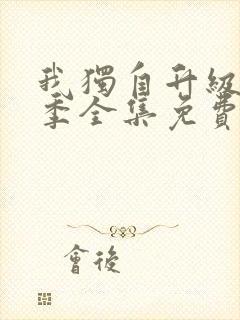 我獨自升級
季全集免費
會後